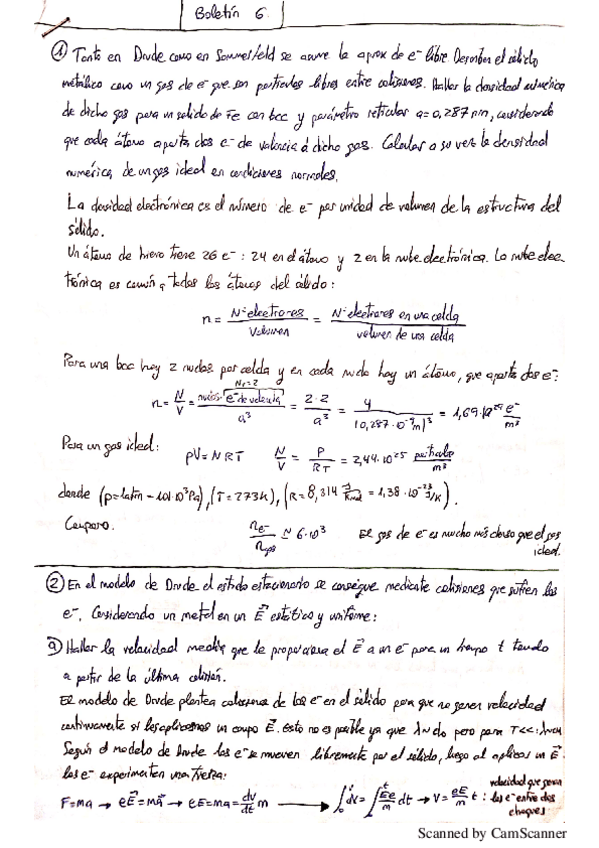 Boletín 6.
① Tanto en Drude como en Sommerfeld se asume la aprox de e⁻ libre. Describen el sólido
metálico como un gas de e⁻ que son partículas libres entre colisiones. Hallar la densidad numérica
de dicho gas para un sólido de Fe con bcc y parámetro reticular a=0,287 nm, considerando
que cada átomo aporta dos e⁻ de valencia a dicho gas. Calcular a su vez la densidad
numérica de un gas ideal en condiciones normales.
La densidad electrónica es el número de e⁻ por unidad de volumen de la estructura del
sólido.
Un átomo de hierro tiene 26 e⁻: 24 en el átomo y 2 en la nube electrónica. La nube elec
trónica es común a todos los átomos del sólido:
n = Nº electrones / Volumen = Nº electrones en una celda / volumen de una celda
Para una bcc hay 2 nudos por celda y en cada nudo hay un átomo, que aporta dos e⁻:
n = N/V = nudos · e⁻ de valencia / a³ = 2·2 / a³ = 4 / (0,287·10⁻⁹m)³ = 1,69·10²⁹ e⁻/m³
Para un gas ideal: pV = NRT N/V = P/RT = 2,44·10²⁵ partículas/m³
donde (p=1atm - 101·10³Pa), (T=273K), (R=8,314 J/Kmol = 1,38·10⁻²³ J/K).
Comparo. n e⁻ / n gas ≃ 6·10³ El gas de e⁻ es mucho más denso que el gas
ideal.
② En el modelo de Drude el estado estacionario se consigue mediante colisiones que sufren los
e⁻. Considerando un metal en un E⃗ estático y uniforme:
a) Hallar la velocidad media que le proporciona el E⃗ a un e⁻ para un tiempo t tomado
a partir de la última colisión.
El modelo de Drude plantea colisiones de los e⁻ en el sólido para que no ganen velocidad
continuamente si les aplicamos un campo E⃗. Esto no es posible ya que pero para
Según el modelo de Drude los e⁻ se mueven libremente por el sólido, luego al aplicar un E⃗
los e⁻ experimentan una fuerza:
F=ma → eE⃗=ma⃗ → eE=ma=dv/dt m → ∫₀ᵛ dv = ∫₀ᵗ Ee/m dt → V = eE/m t : velocidad que ganan
los e⁻ entre dos
choques
Scanned by CamScanner